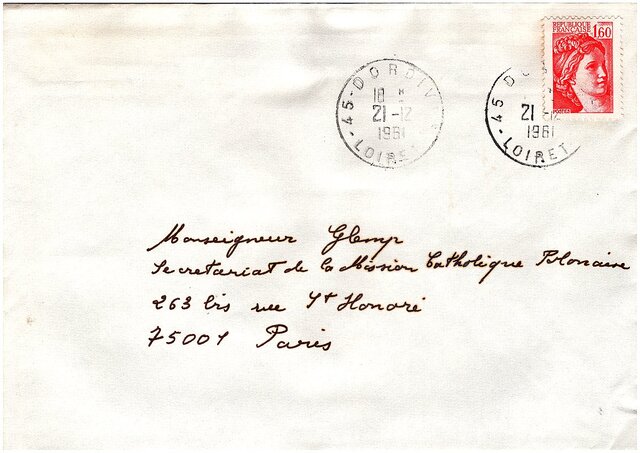 REPUBLIQUE
FRANÇAISE 1,60
POSTES
45 - DORDIV
18 H
21 -12
1981
LOIRET
45 D
21 -12
1981
LOIRET
Monseigneur Glemp
Secretariat de la Mission Catholique Polonaise
263 bis rue St Honoré
75001 Paris